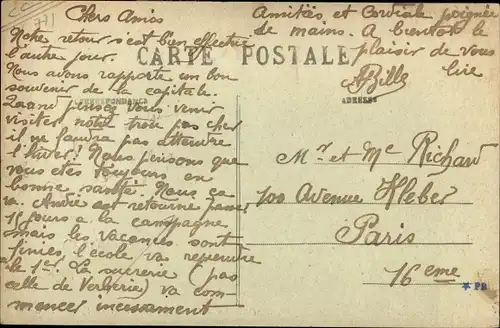 771
Chers Amis
Notre retour s'est bien effectué
l'autre jour.
Nous avons rapporté un bon
souvenir de la capitale.
Quand pensez vous venir
visiter notre trou pas cher
il ne faudra pas attendre
l'hiver! Nous pensons que
vous êtes toujours en
bonne santé. Nous ça
va. André est retourné passer
15 jours a la campagne
mais les vacances sont
finies l'école va reprendre
le 1er. La sucrerie (pas
celle de Verberie) va com-
mencer incessamment
Amitiés et Cordiale poignée
de mains. A bientôt le
plaisir de vous
lire
ABille
CARTE POSTALE
CORRESPONDANCE
ADRESSE
Mr et Me Richard
100 Avenue Kleber
Paris
16eme
PB